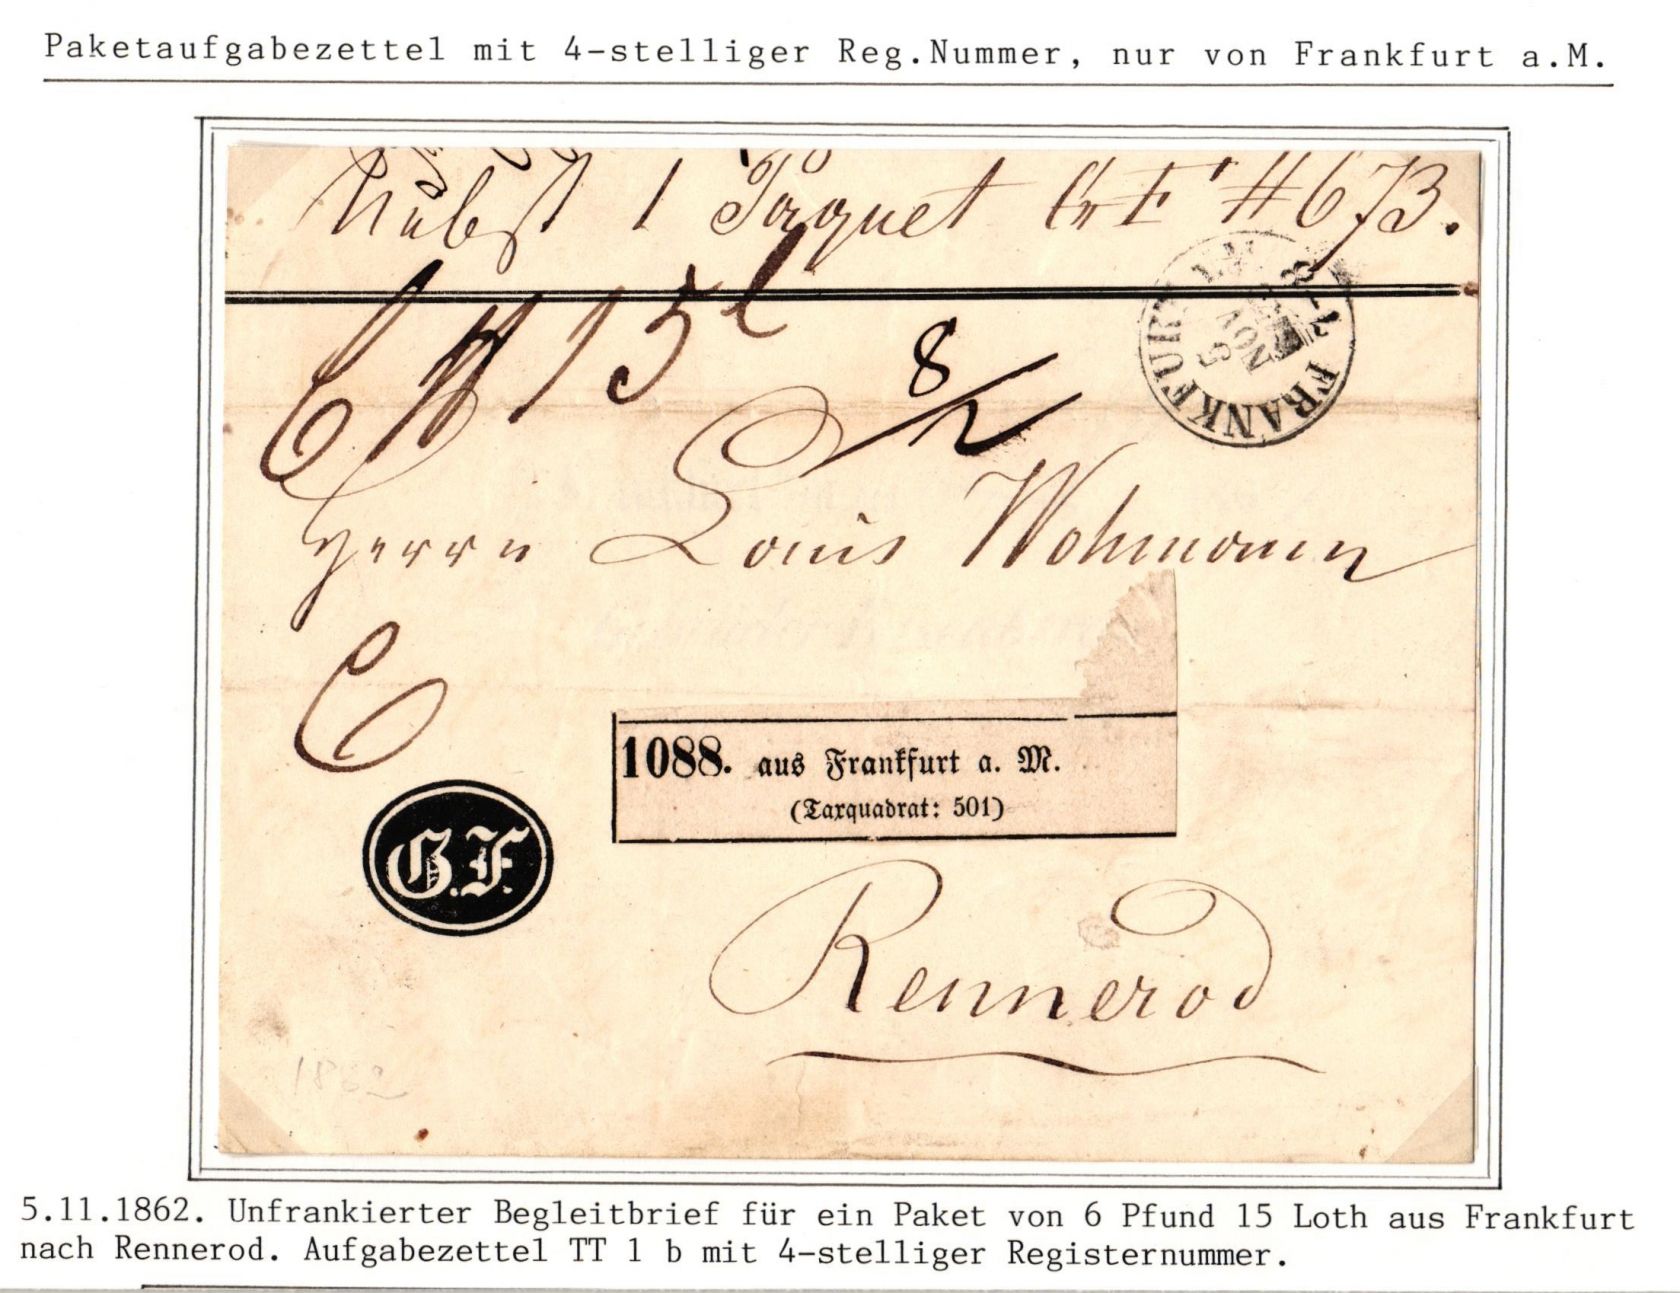 Paketaufgabezettel mit 4-stelliger Reg.Nummer, nur von Frankfurt a.M.
Nebst 1 Paquet G F #673.
6 ℔ 15 l
8/2
FRANKFURT A.M.
5
NOV
7-8
Herrn Louis Wohmann
1088. aus Frankfurt a. M.
(Taxquadrat: 501)
G.F.
Rennerod
1862
5.11.1862. Unfrankierter Begleitbrief für ein Paket von 6 Pfund 15 Loth aus Frankfurt
nach Rennerod. Aufgabezettel TT 1 b mit 4-stelliger Registernummer.